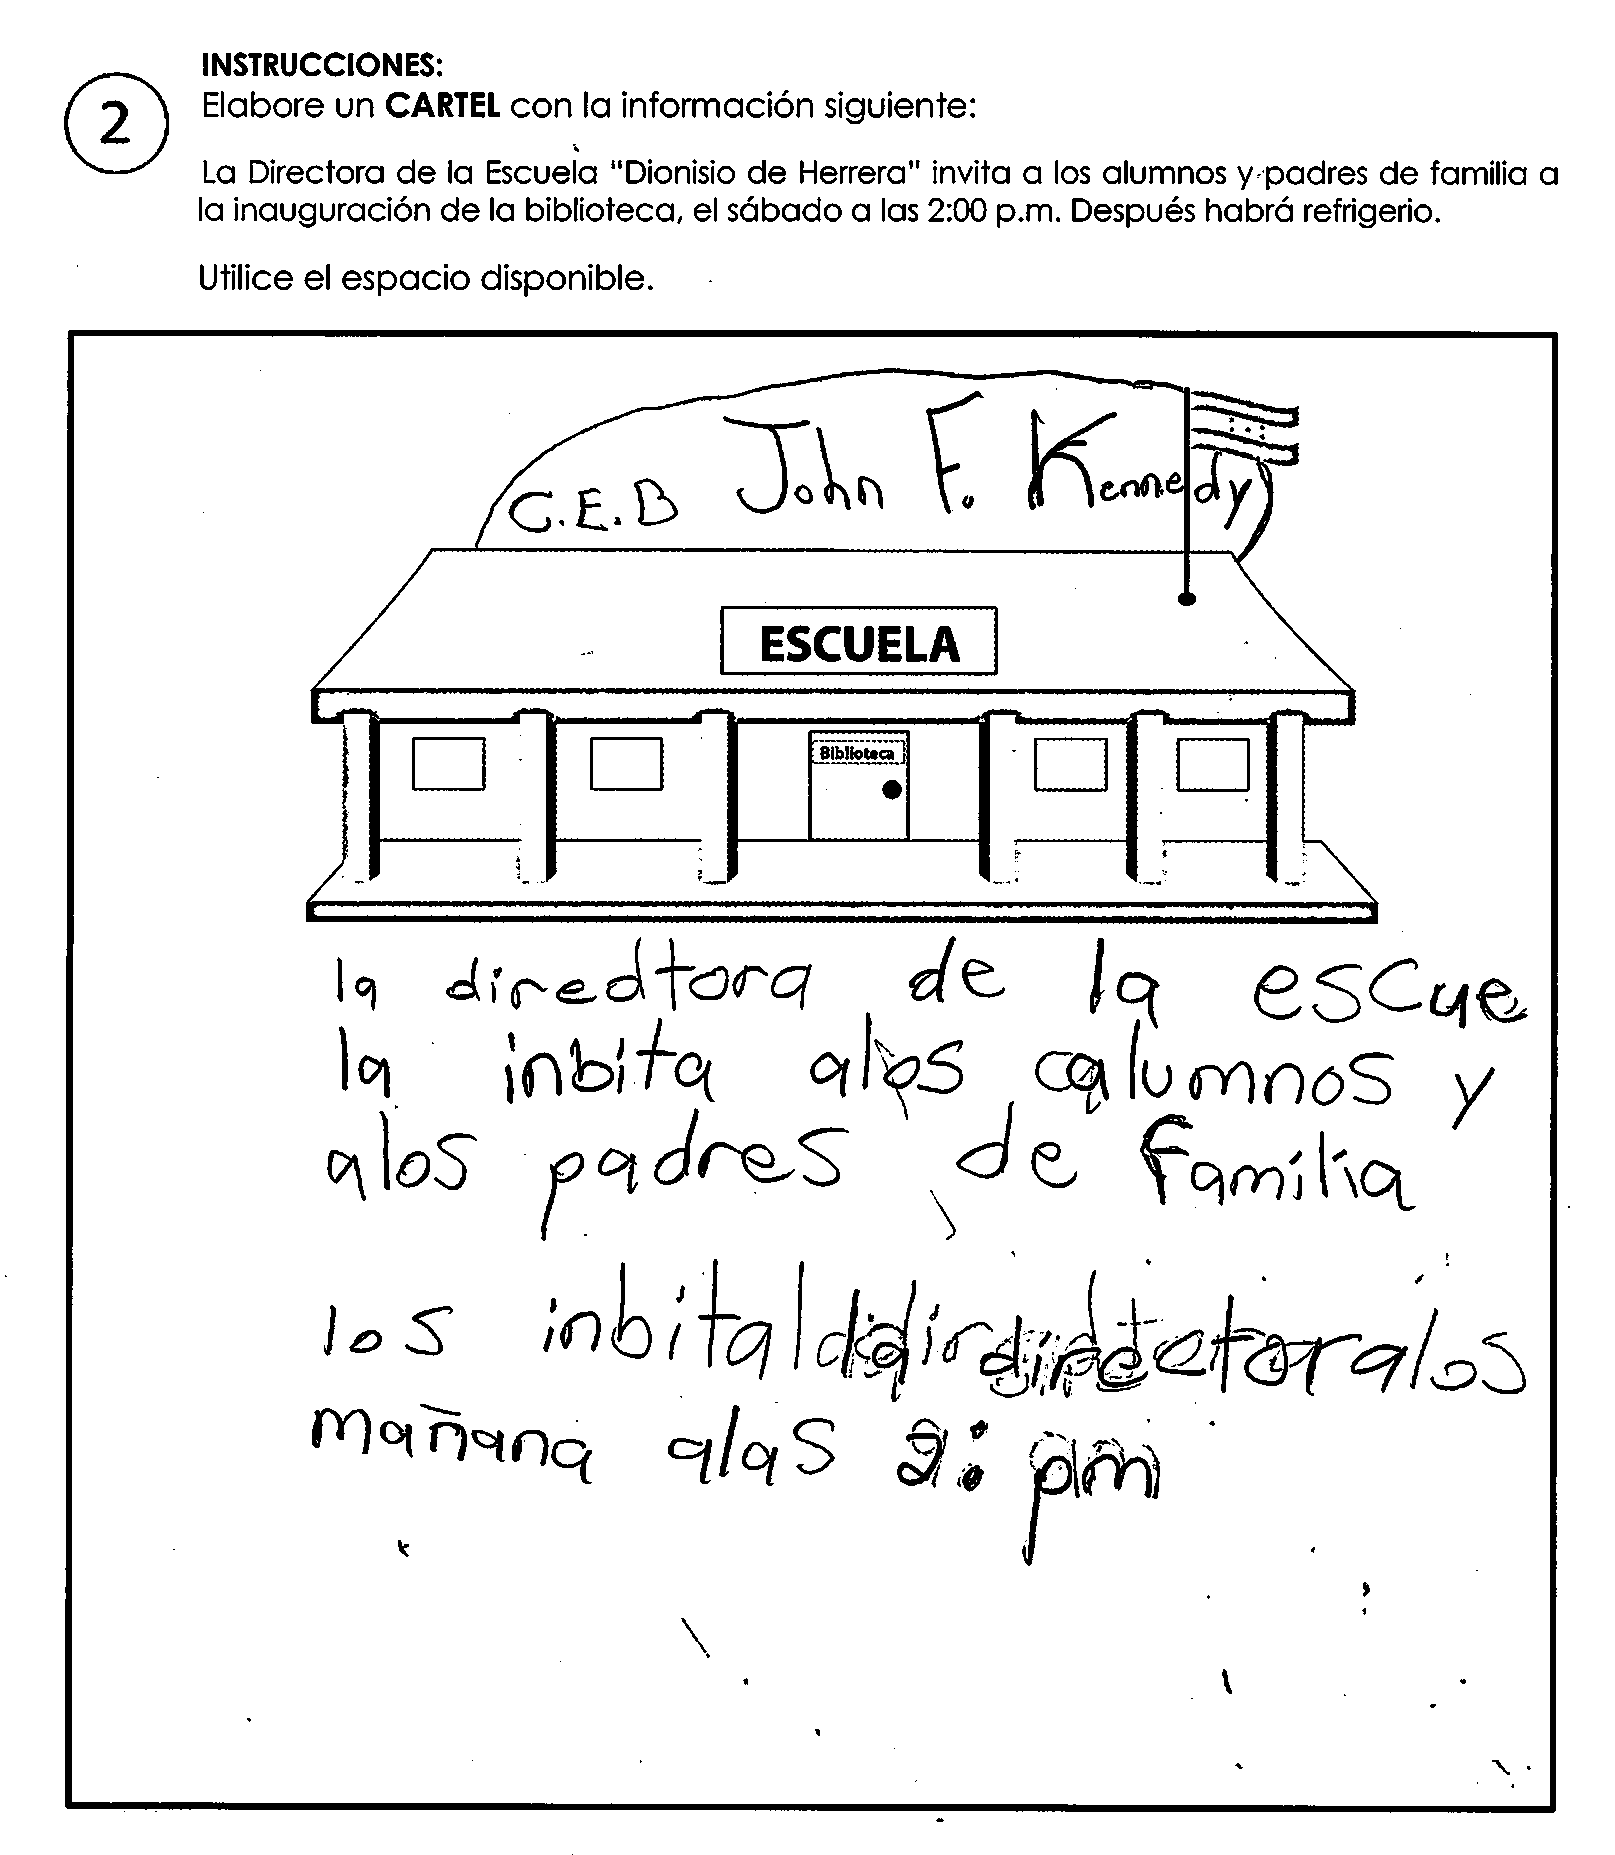 INSTRUCCIONES:
2
Elabore un CARTEL con la información siguiente:
La Directora de la Escuela "Dionisio de Herrera" invita a los alumnos y padres de familia a
la inauguración de la biblioteca, el sábado a las 2:00 p.m. Después habrá refrigerio.
Utilice el espacio disponible.
C.E.B John F. Kennedy
ESCUELA
Biblioteca
la diredtora de la escue
la inbita alos calumnos y
alos padres de familia
los inbita la directora los
mañana alas 2: pm